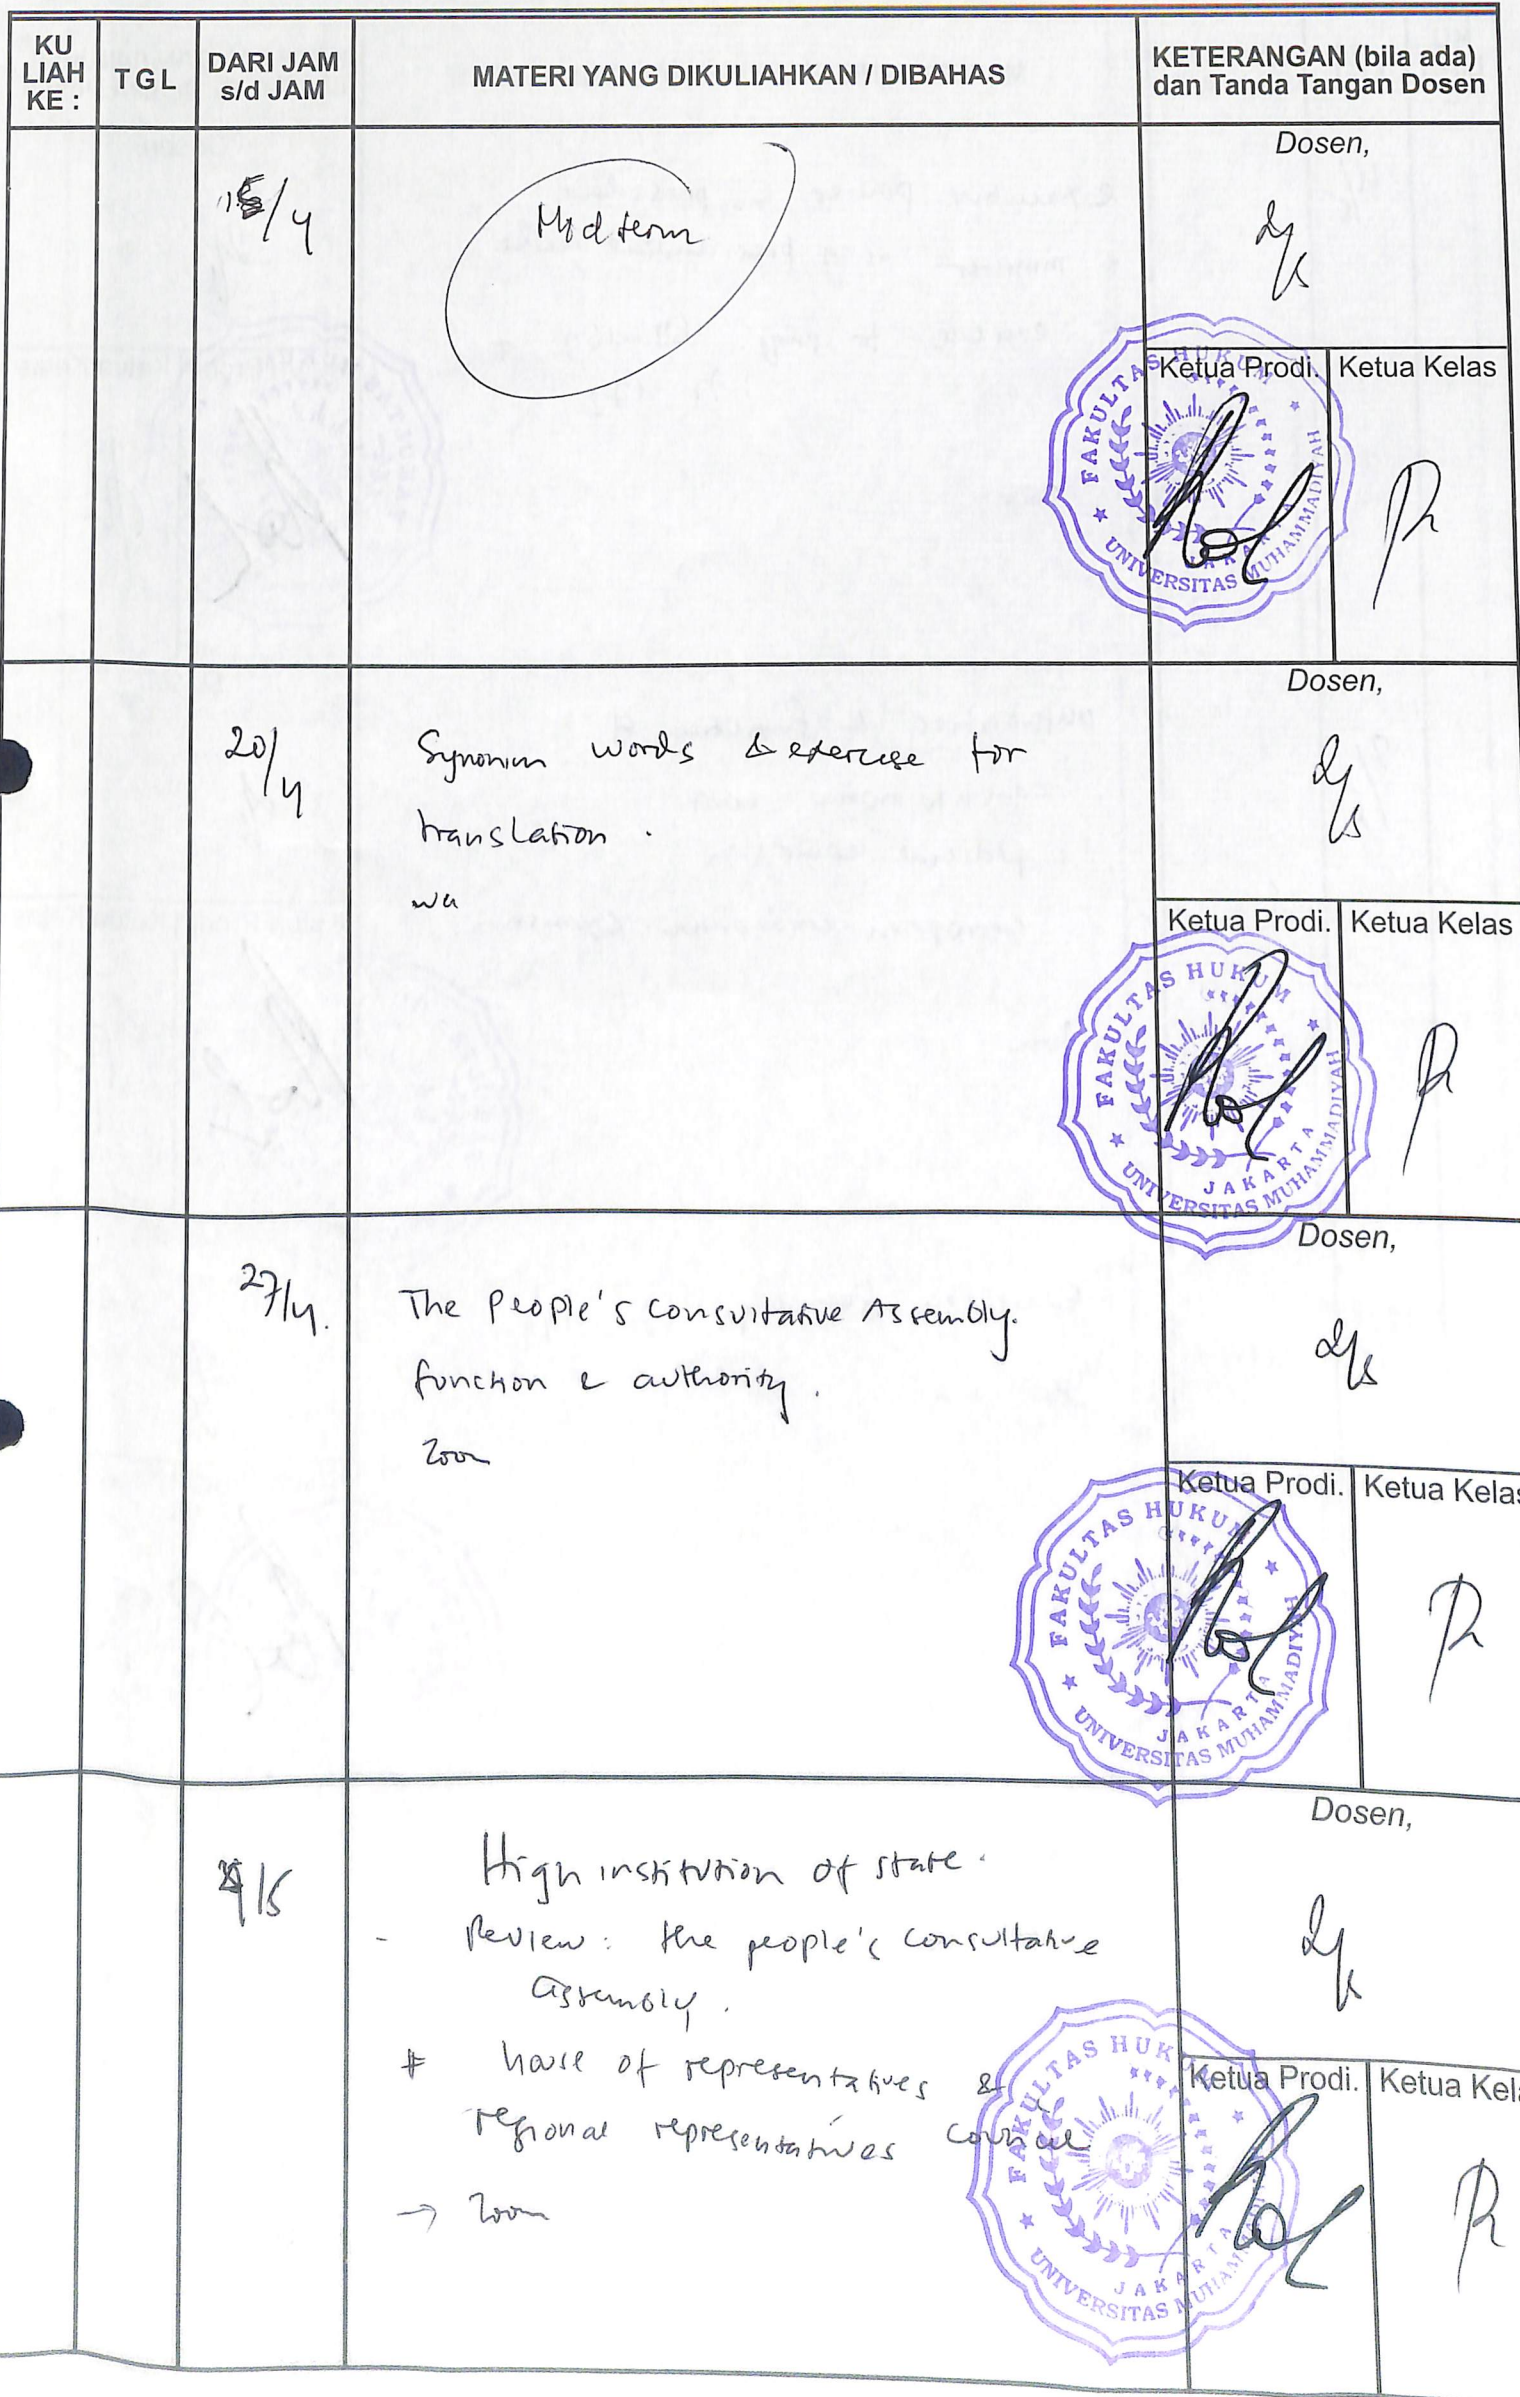 KU LIAH KE :
TGL
DARI JAM s/d JAM
MATERI YANG DIKULIAHKAN / DIBAHAS
KETERANGAN (bila ada) dan Tanda Tangan Dosen
/4
Midterm
Dosen,
Ketua Prodi.
Ketua Kelas
FAKULTAS HUKUM
UNIVERSITAS MUHAMMADIYAH
JAKARTA
20/4
Synonim words & exercise for
translation .
wa
Dosen,
Ketua Prodi.
Ketua Kelas
FAKULTAS HUKUM
UNIVERSITAS MUHAMMADIYAH
JAKARTA
27/4.
The People's Consultative Assembly.
function & authority.
Zoom
Dosen,
Ketua Prodi.
Ketua Kelas
FAKULTAS HUKUM
UNIVERSITAS MUHAMMADIYAH
JAKARTA
/5
High institution of state.
- Review : the people's consultative
assembly.
# house of representatives &
regional representatives council
→ Zoom
Dosen,
Ketua Prodi.
Ketua Kela
FAKULTAS HUKUM
UNIVERSITAS MUHAMMADIYAH
JAKARTA